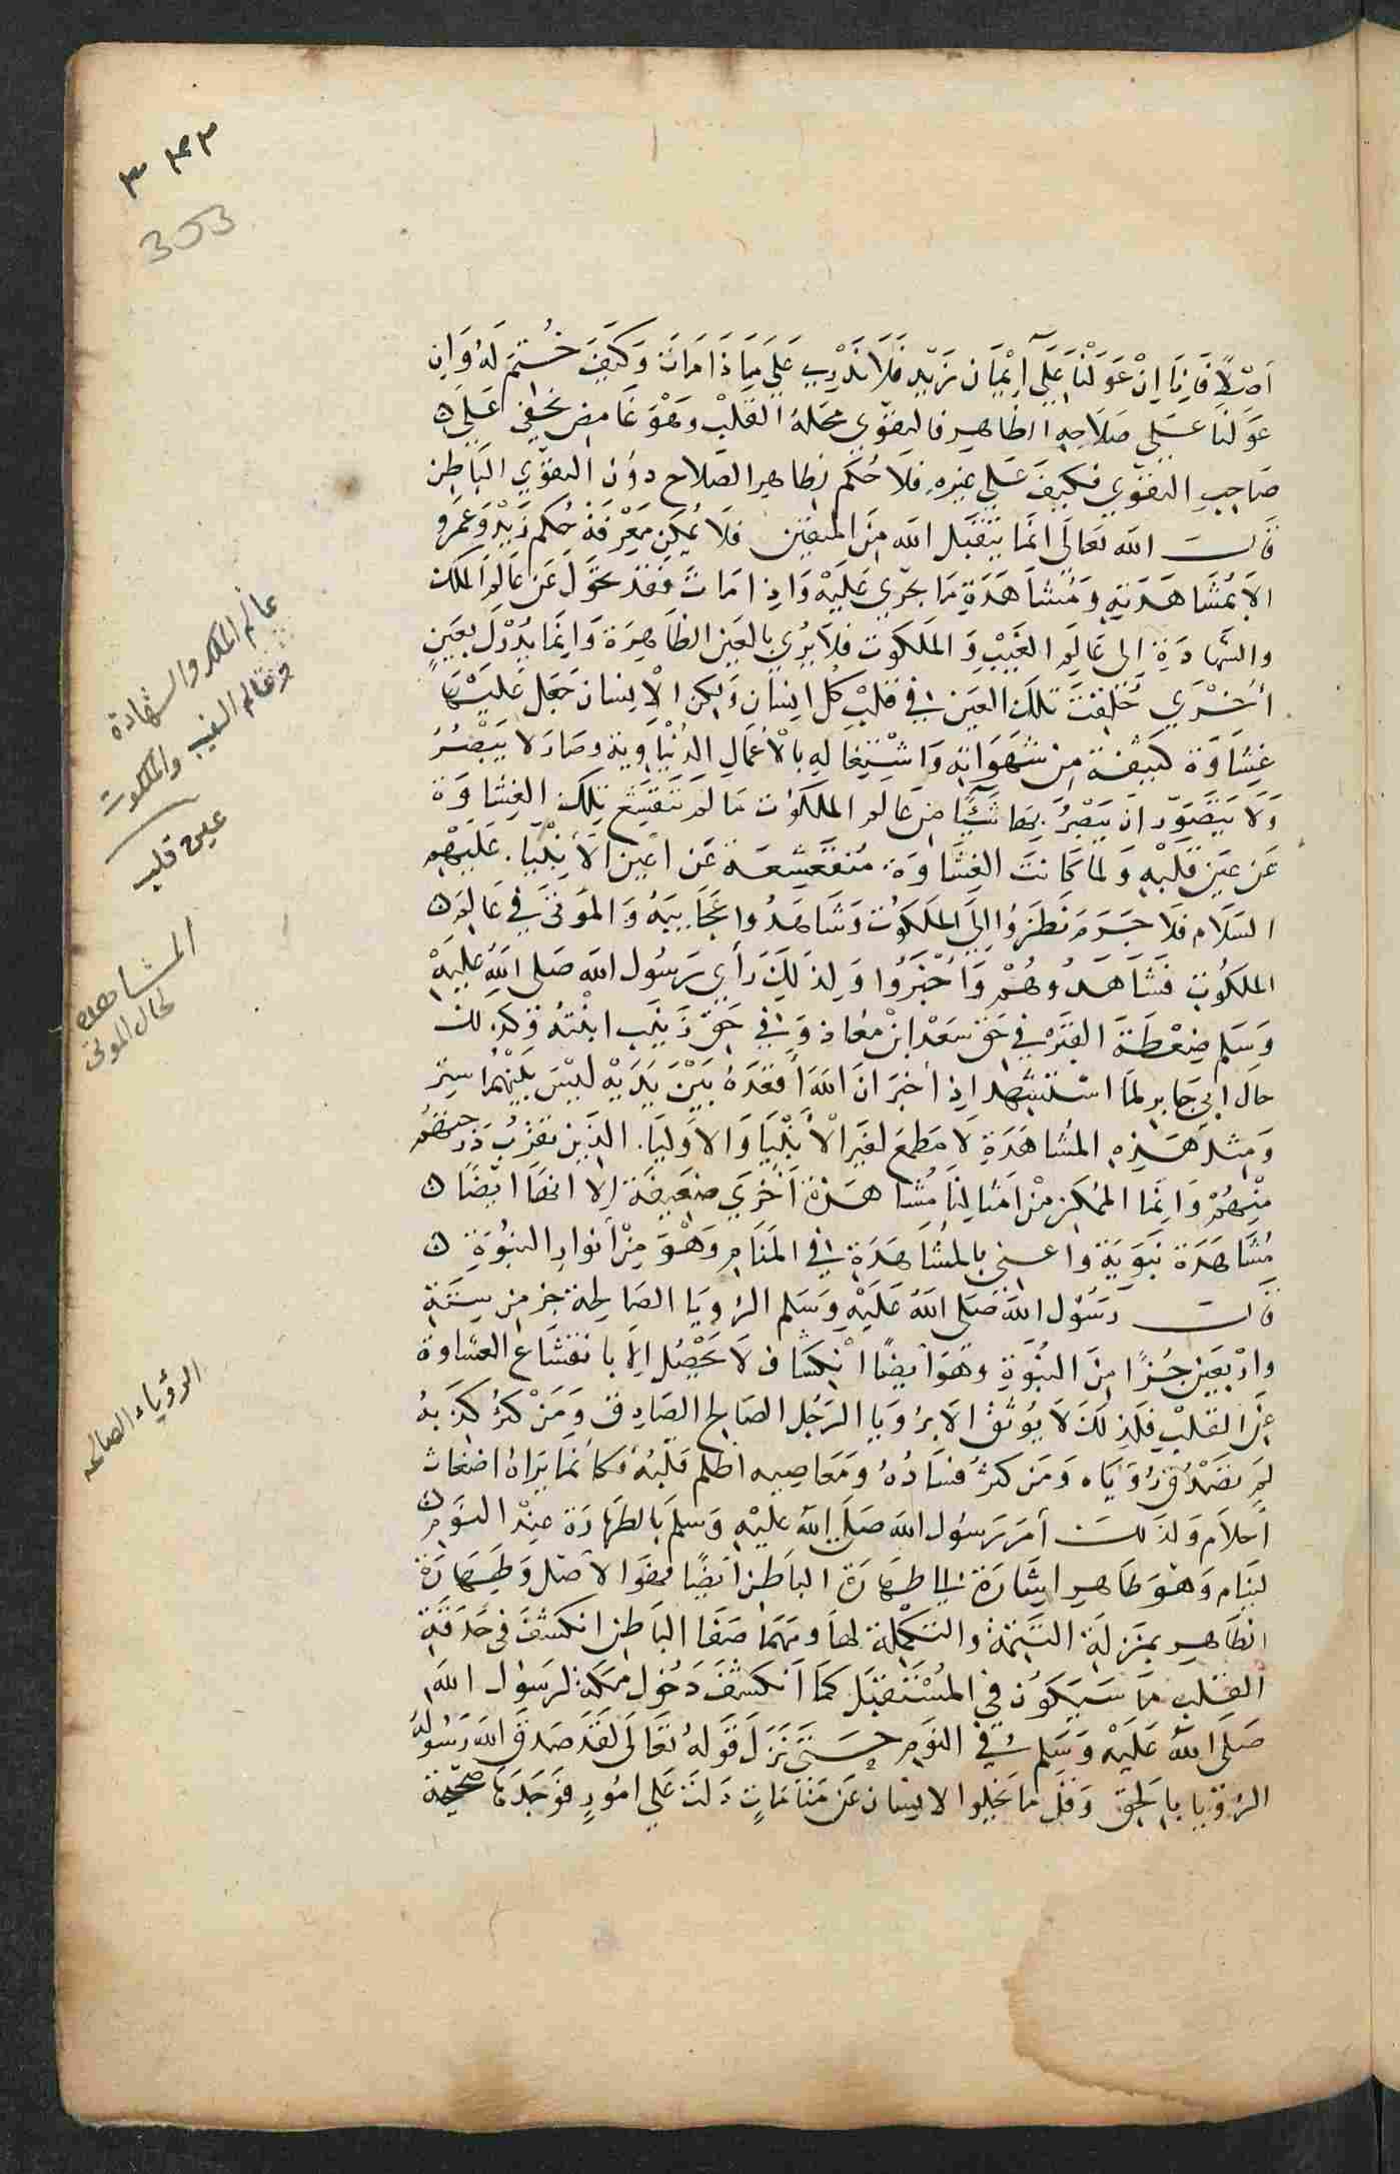 ٣٤٣
303
اصْلاً فَانا اِنْ عَوَلْنَا عَلَى ايْمَان زَيْدٍ فَلَا نَدْرِي عَلَي مَاذَا مَاتَ وَكَيْفَ خُتِمَ لَهُ وَاِن
عَوَلنَا عَلَي صَلَاحِهِ الظاهِرِ فالتقوي محَلهُ القَلبْ وَهْوَ غَامِض يخفي عَلَى
صَاحِبِ التقوي فكيفَ عَلي غيرهِ فلَا حُكم لظاهِر الصَلاح دوُن التقوي البَاطِن
قَالَ الله تعَالَى انمَا يتقبَل الله مِنَ المتقين فلَا يمكِن مَعْرِفَة حُكم زَيْد وَعَمرو
الا بمُشَاهَدَتِهِ وَمُشَاهَدَةِ مَا يجْرِي عَلَيْهْ وَاِذا مَاتَ فَقَد تحَوَّلَ عَن عَالَم المَلك
وَالشهَادَةِ الى عَالَم الغَيْبْ وَالمَلكوُت فلَا يُرَي بالعَين الظَاهِرَة وَانِمَا يُدْرَك بِعَينٍ
اُخْرَي خُلِقَتْ تلكَ العَيَن في قلبْ كُل اِنسَان وَلكِن الْاِنسَان جَعَل عَلَيْهَا
غِشَاوَة كَثِيفَة مِن شهَوَاتِهِ وَاشْتِغَالِهِ بالْاعْمَالِ الدُنْيَاوِية وصَارَ لا يَبْصُرُ
وَلَا يَتصَوّر ان يَبْصُرُ بهَا شَيًْا مِن عَالم الملكوُت مَا لَم تَنْقَشِع تِلك الغِشاوَة
عَن عَيْن قَلبْهِ وَلمَا كَانتَ الغِشَاوَة مُنقَشِعَة عَن اعْين الانْبيَا. عَلَيْهِمِ
السَلَام فلَا جَرَمَ نظَرُوا الَى المَلكوُت وَشَاهَدُوا عَجَايبَهُ وَالموتىَ في عَالم
الملكوُت فشَاهَدُوهُمْ وَاَخْبَرُوا وَلِذلِكَ رَأي رَسُول الله صَلى اللهُ عَليَهْ
وَسَلم ضغْطَةَ القَبْرَ في حَقِ سَعْد ابْن مُعَاذ وَفي حَقِ زَيْنَب ابْنتُهُ وَكذلك
حَال ابي جَابر لما استشهد اِذ اخْبَرَ انَ اللهَ اقعَدَهُ بَيْنَ يَدَيَهْ ليْسَ بَيْنهُمَا سِتر
وَمِثل هَذِهِ المُشاهَدَةِ لَا مَطمع لغيَر الْانْبيَا وَالاوليَا. الذِين تقرُب دَرجتهُم
مِنْهُمْ وَانِمَا الممْكن مِنْ امثالِنَا مُشَاهَدَة اُخْرَي ضَعِيفَة اِلا انهَا ايْضًا
مُشَاهَدَة نَبَوَية وَاعني بالمشَاهَدَةِ في المَنَامِ وَهْوَ مِنْ اَنوَارِ النبُوَة
قَالَ رَسُول الله صَلى اللهُ عَلَيْهِ وَسَلم الرويَا الصَالحِة جز مِن سِتَةٍ
وَاربَعِين جُزًا مِنَ النُبُوَةِ وهُوَ ايضًا انْكِشَاف لَا يَحْصُل اِلا بانقشَاع الغشاوَة
عن القَلبْ فلذلكَ لَا يوُثَقُ الَا برُويَا الرَجُل الصَالح الصَادِق وَمَن كثُر كذبهُ
لَم تصْدُق رُويَاه وَمَن كثرُ فسَادُهُ وَمَعَاصِيه اظلم قلبُهُ فكانمَا يَرَاهُ اضغَاث
احْلَام وَلذلكَ اَمَرَ رَسُول الله صَلى اللهُ عَليَهْ وَسَلمَ بالطَهَارَة عِنْد النَومِ
لينَام وَهْوَ طَاهِر اِشَارَة الي طَهَارَة البَاطِن ايضًا فهُوَ الاصْل وَطَهَارَة
الظَاهِر بمنَزِلَة التتِمَة وَالتكمِلة لهَا وَمَهمَا صَفَا البَاطِن انكَشَفَ في حَدَقَةِ
القَلبِ مَا سَيَكوُن في المُسْتَقبَل كَمَا انكَشَفَ دَخُول مَكَة لرَسُول الله
صَلى اللهُ عَلَيْهْ وَسَلم في النَوم حَتىَ نَزَلَ قَولهُ تعَالَى لَقَد صَدَقَ اللهَ رَسُولهُ
الرويَا بالحَق وَقَل مَا يخلوا الاِنسَان عَن مَنامَاتٍ دَلتْ عَلي امُورٍ فوَجَدَهَا صَحيحَة
عالم الملك والشهادة
وعالم الغيب والملكوت
عين قلب
المشاهده
لحال الموتى
الرؤياء الصالحه